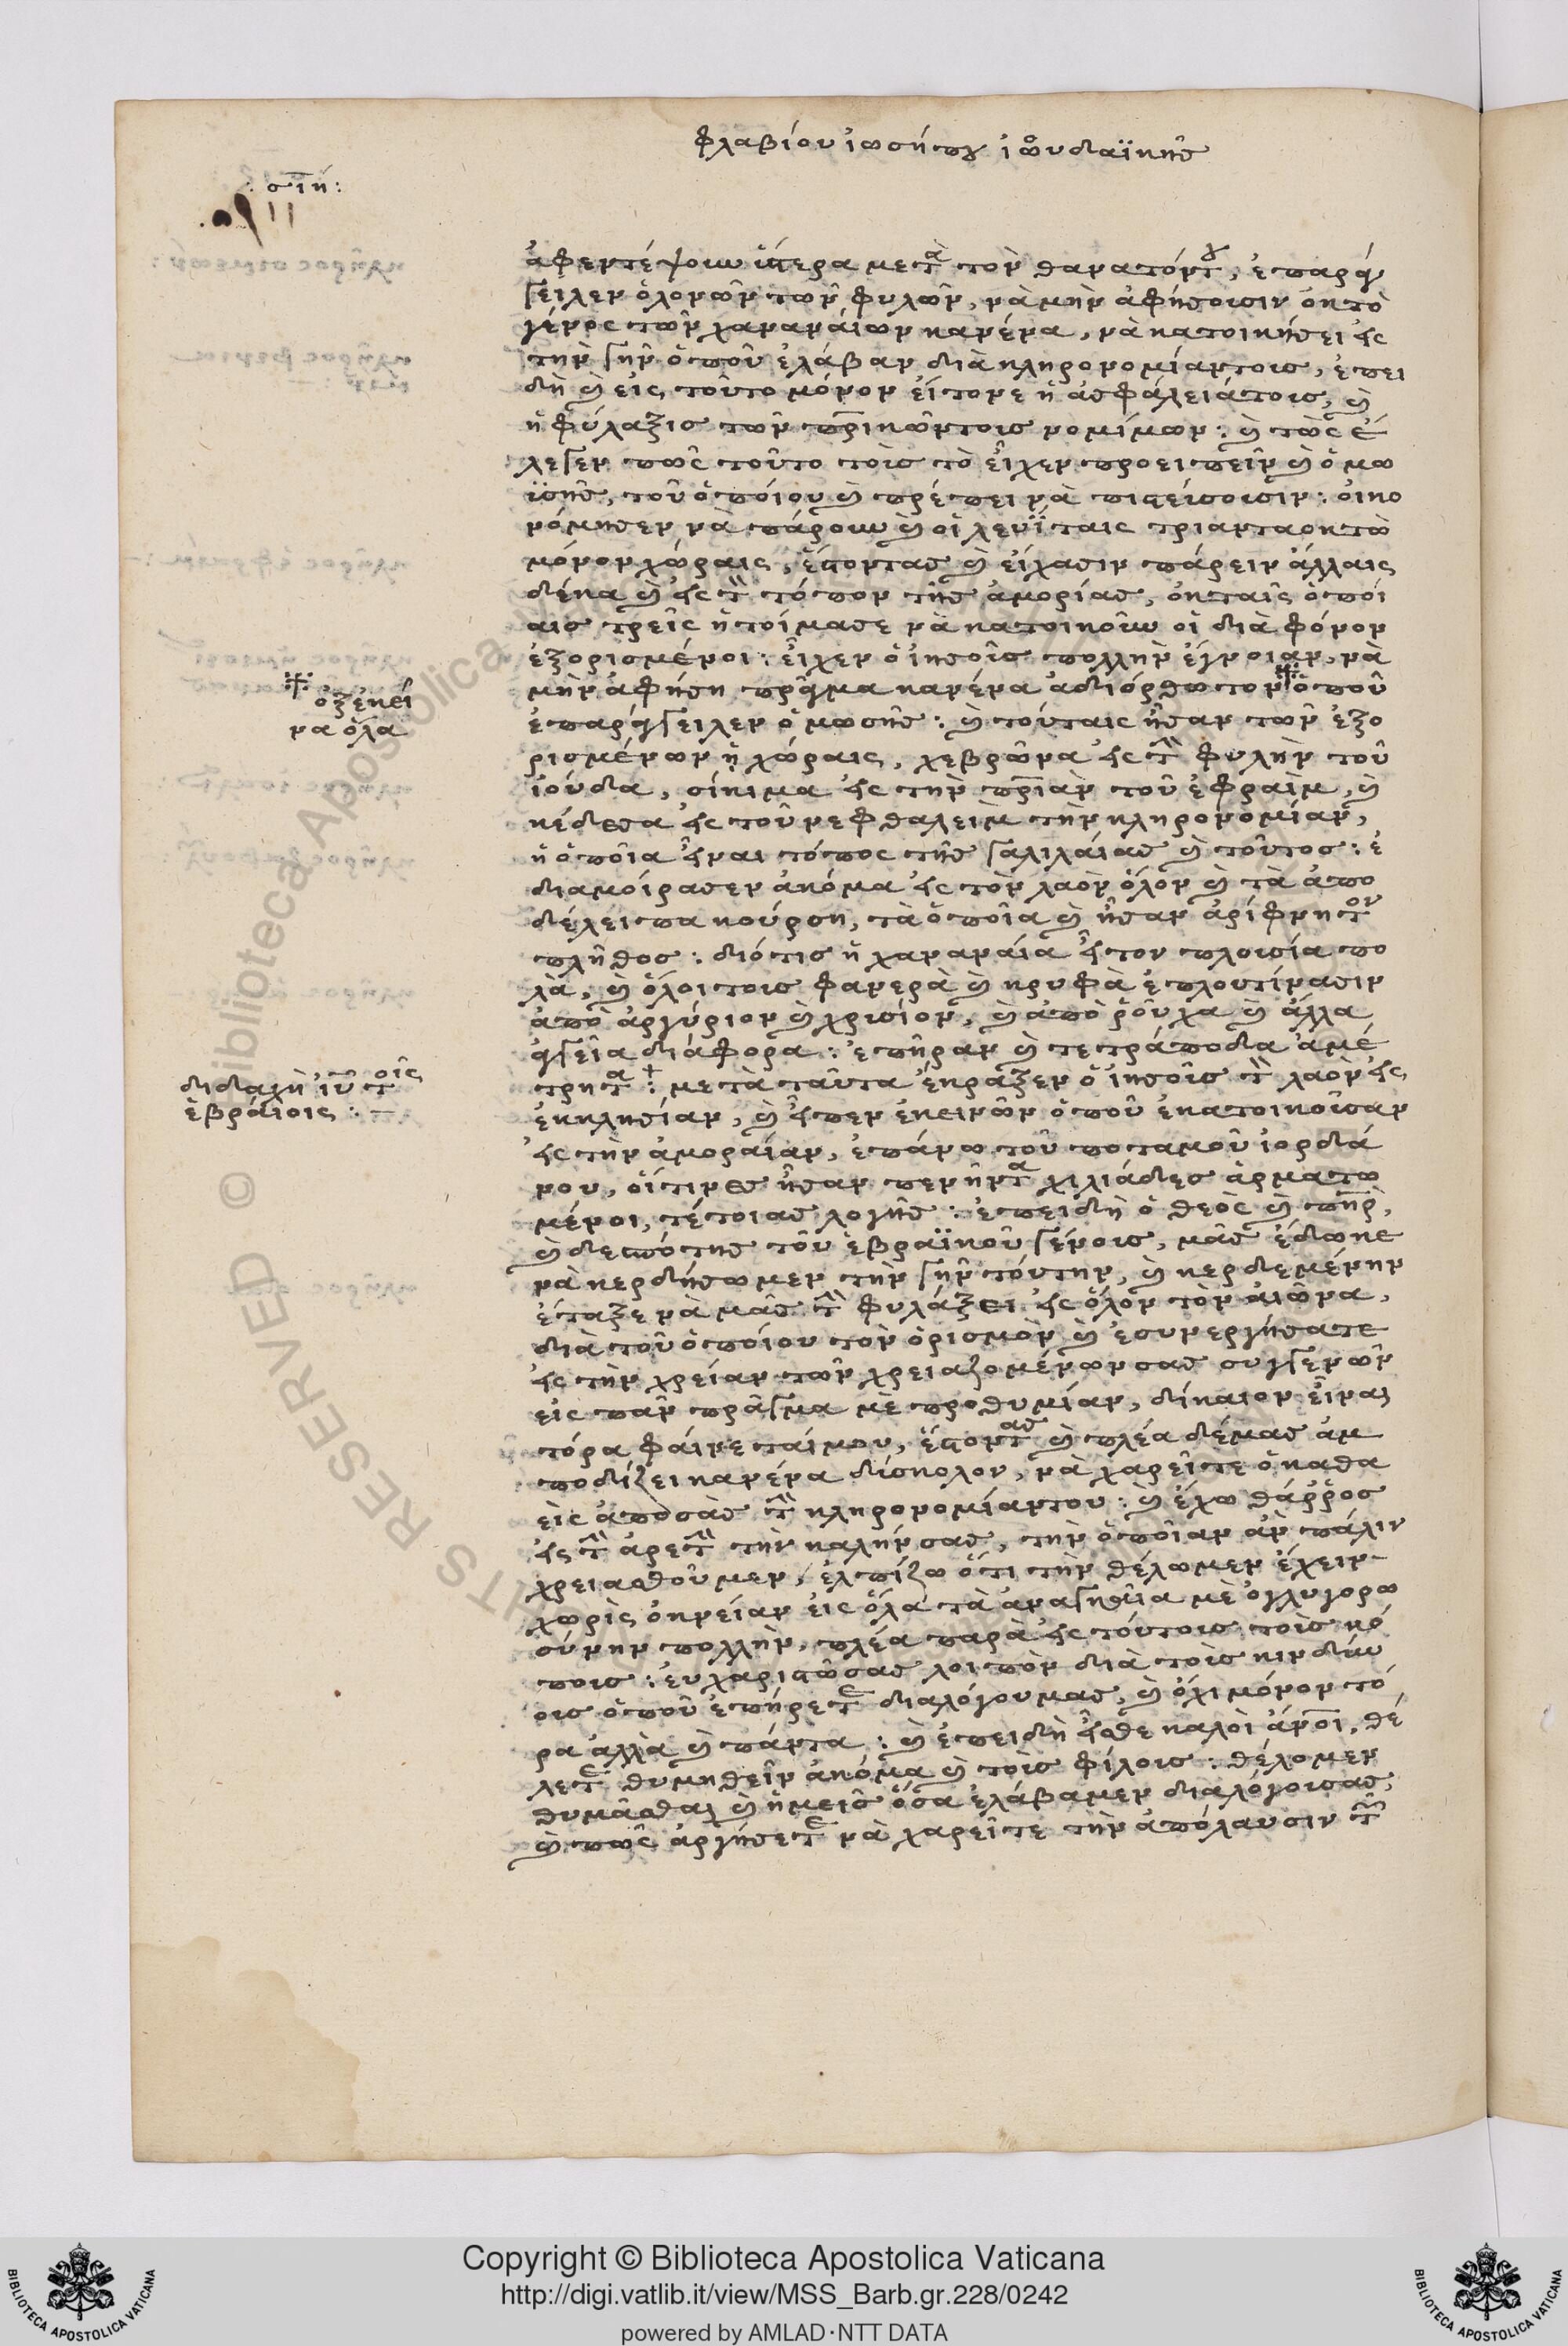 φλαβίου ἰωσήπου ἰουδαϊκῆς
: σιη :
ἀφεντέψουν ὕστερα μετὰ τὸν θανατόντου, ἐπαρήγ
γειλεν ὁλονῶν τῶν φυλῶν, νὰ μὴν ἀφήσουσιν ἐκ τὸ
γένος τῶν χαναναίων κανένα, νὰ κατοικήσει εἰς
τὴν γῆν ὁποῦ ἐλάβαν διὰ κληρονομίαντους, ἐπει
δὴ καὶ εἰς τοῦτο μόνον εἴτονε ἡ ἀσφάλειάτους, καὶ
ἡ φύλαξις τῶν πατρικῶντους νομίμων : καὶ τῶς ἔ
λεγεν πῶς τοῦτο τοὺς τὸ εἶχεν προειπεῖν καὶ ὁ μω
ϋσῆς, τοῦ ὁποίου καὶ πρέπει νὰ πιστεύσουσιν : οἰκο
νόμησεν νὰ πάρουν καὶ οἱ λευΐταις τριανταοκτὼ
μόνον χώραις, ἔστοντας καὶ εἴχασιν πάρειν ἄλλαις
δέκα καὶ εἰς τὸν τόπον τῆς ἀμορίας, ἐκ ταῖς ὁποί
αις τρεῖς ἡτοίμασε νὰ κατοικοῦν οἱ διὰ φόνον
ἐξορισμένοι : εἶχεν ὁ ἰησοῦς πολλὴν ἔγνοιαν, νὰ
μὴν ἀφήση πρᾶγμα κανένα ἀδιόρθωτον ὁποῦ
ὀξ ἐκεῖ
να ὅλα
ἐπαρήγγειλεν ὁ μωσῆς : καὶ τούταις ἦσαν τῶν ἐξο
ρισμένων ἡ χώραις, χεβρῶνα εἰς τὴν φυλὴν τοῦ
ἰούδα, σίκιμα εἰς τὴν πατριὰν τοῦ ἐφραὶμ, καὶ
κέδεσα εἰς τοῦ νεφθαλεὶμ τὴν κληρονομίαν,
ἡ ὁποῖα εἶναι τόπος τῆς γαλιλαίας καὶ τοῦτος : ἐ
διαμοίρασεν ἀκόμα εἰς τὸν λαὸν ὅλον καὶ τὰ ἀπο
δέλειπα κούρση, τὰ ὁποῖα καὶ ἦσαν ἀρίφνητον
πλῆθος : διότις ἡ χαναναία εἶτον πλουσία πο
λὰ, καὶ ὅλοι τους φανερὰ καὶ κρυφὰ ἐπλουτίνασιν
ἀπὸ ἀργύριον καὶ χρισίον, καὶ ἀπὸ ῥοῦχα καὶ ἄλλα
ἀγγεῖα διάφορα : ἐπῆραν καὶ τετράποδα ἀμέ
τρητα : μετὰ ταῦτα ἔκραξεν ὁ ἰησοῦς τὸν λαὸν εἰς
διδαχὴ ἰυ τοῖς
ἑβραίοις :
ἐκκλησίαν, καὶ εἶπεν ἐκεινῶν ὁποῦ ἐκατοικοῦσαν
εἰς τὴν ἀμοραίαν, ἐπάνω τοῦ ποταμοῦ ἰορδά
νου, οἵτινες ἦσαν πενῆντα χιλιάδες ἀρματω
μένοι, τέτοιας λογῆς : ἐπειδὴ ὁ θεὸς καὶ πατὴρ,
καὶ δεσπότης τοῦ ἑβραϊκοῦ γένους, μᾶς ἔδωκε
νὰ κερδήσωμεν τὴν γῆν τούτην, καὶ κερδεμένην
ἔταξε νὰ μᾶς τὴν φυλάξει εἰς ὅλον τὸν αἰῶνα,
διὰ τοῦ ὁποίου τὸν ὁρισμὸν καὶ ἐσυνεργήσατε
εἰς τὴν χρείαν τῶν χρειαζομένων σας συγγενῶν
εἰς πᾶν πρᾶγμα μὲ προθυμίαν, δίκαιον εἶναι
τόρα φαίνεταίμου, ἔστοντας καὶ πλέα δέμας ἀμ
ποδίζει κανένα δίσκολον, νὰ χαρεῖτε ὁ καθα
εἷς ἀπὸσᾶς τὴν κληρονομίαντου : καὶ ἔχω θάρρος
εἰς τὴν ἀρετὴν τὴν καλήν σας, τὴν ὁποῖαν ἂν πάλιν
χρειασθοῦμεν, ἐλπίζω ὅτι τὴν θέλωμεν ἔχειν
χωρὶς ὀκνείαν εἰς ὅλα τὰ ἀναγκαῖα μὲ ὀγλυγορω
σύνην πολλὴν, πλέα παρὰ εἰς τούτους τοὺς κό
πους : εὐχαριστῶσας λοιπὸν διὰ τοὺς κινδύν
ους ὁποῦ ἐπήρετε διαλόγουμας, καὶ ὄχι μόνον τό
ρα ἀλλὰ καὶ πάντα : καὶ ἐπειδὴ εἶσθε καλοὶ ἄνθρωποι, θέ
λετε θυμηθεῖν ἀκόμα καὶ τοὺς φίλους : θέλομεν
θυμᾶσθαι καὶ ἡμεῖς ὅσα ἐλάβαμεν διαλόγουσας,
καὶ πῶς ἀργήσετε νὰ χαρεῖτε τὴν ἀπόλαυσιν τῶν
Copyright © Biblioteca Apostolica Vaticana
http://digi.vatlib.it/view/MSS_Barb.gr.228/0242
powered by AMLAD·NTT DATA
BIBLIOTECA APOSTOLICA VATICANA
BIBLIOTECA APOSTOLICA VATICANA